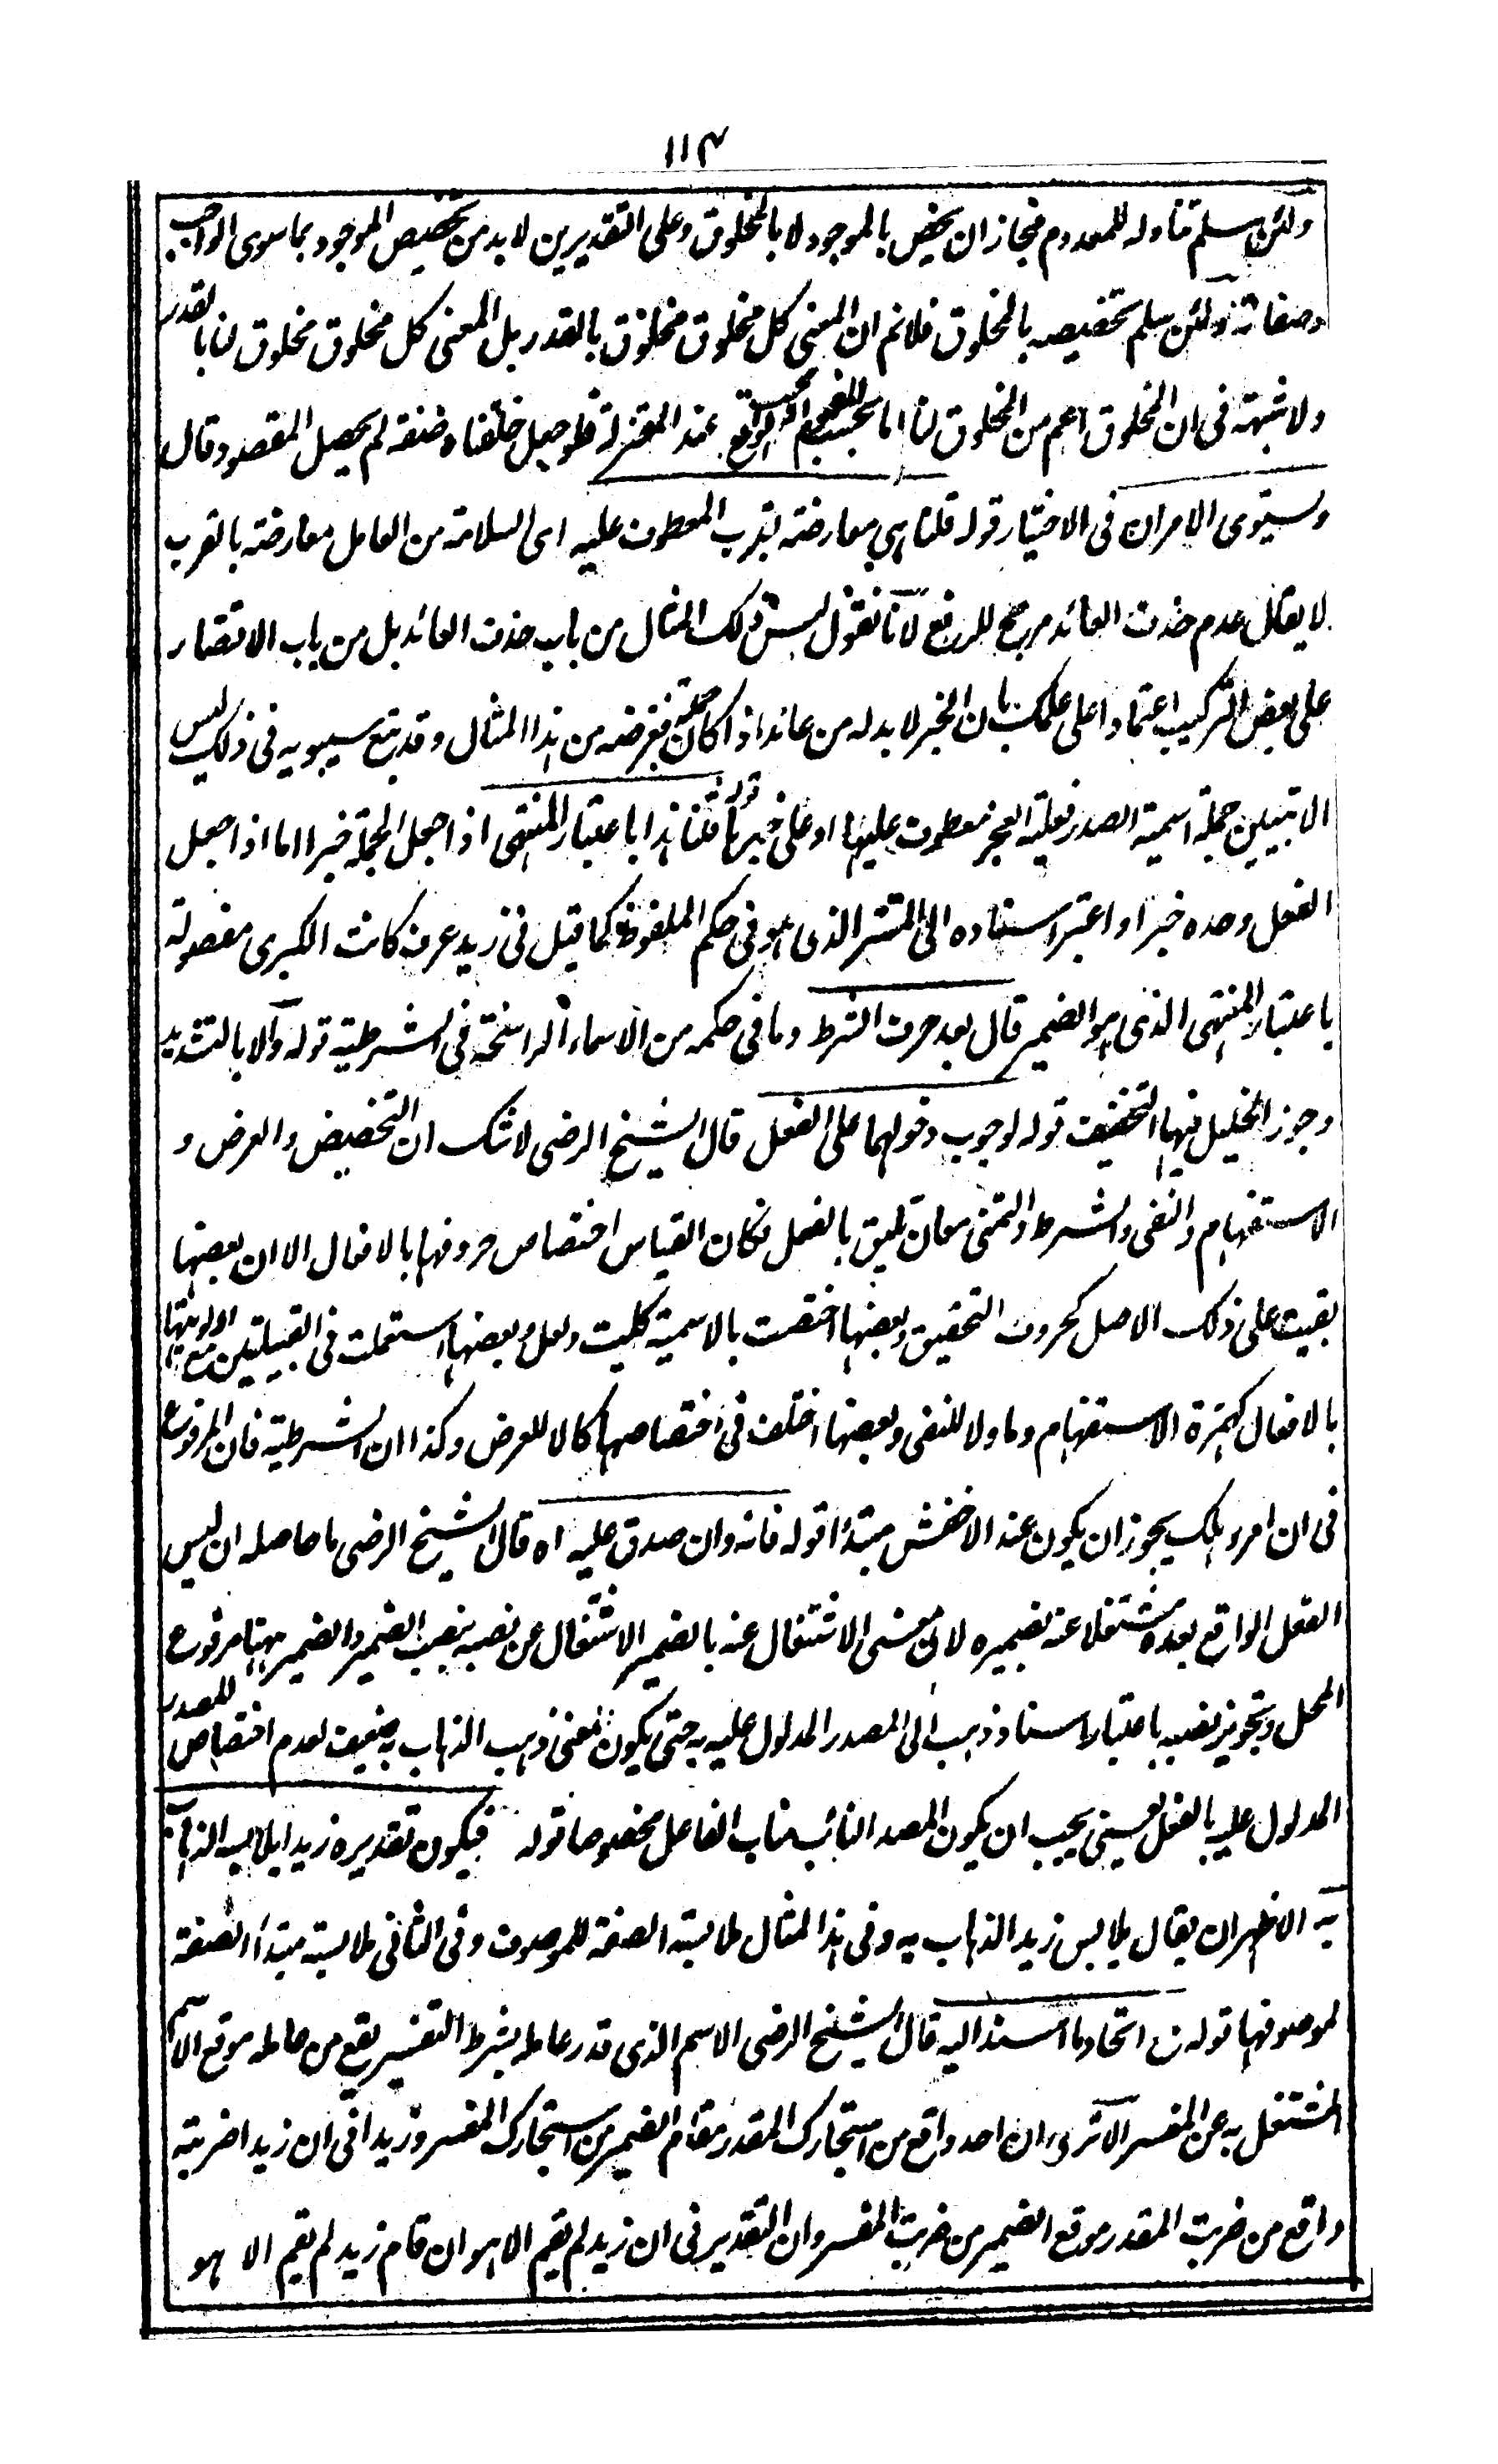 ١١٤
ولئن سلم تناوله للمعدوم فجاز ان يخص بالموجود لا بالمخلوق وعلى التقديرين لا بد من تخصيص الموجود بما سوى الواجب
وصفاته ولئن سلم تخصيصه بالمخلوق فلا نم ان المعنى كل مخلوق مخلوق بالقدر بل المعنى كل مخلوق مخلوق لنا بالقدر
ولا شبهة فى ان المخلوق اعم من المخلوق لنا اما بحسب الواقع عند المعتزلة فلو جعل خلقناه صفة لم يحصل المقصود قال
ويستوى الامران فى الاختيار قوله قلنا هى معارضة بقرب المعطوف عليه اى السلامة من العامل معارضة بالقرب
لا يقال عدم حذف العائد مرجح للرفع لانا نقول ليس ذلك المثال من باب حذف العائد بل من باب الاقتصار
على بعض التركيب اعتمادا على علمك بان الخبر لا بد له من عائد اذا كان جملة فغرضه من هذا المثال وقد تبع سيبويه فى ذلك ليس
الا تبيين جملة اسمية الصدر فعلية العجز معطوف عليها او على خبرها قوله قلنا هذا باعتبار المنتهى اذا جعل الجملة خبرا اما اذا جعل
الفعل وحده خبرا او اعتبر اسناده الى المستتر الذى هو فى حكم الملفوظ كما قيل فى زيد عرف كانت الكبرى مفصولة
باعتبار المنتهى الذى هو الضمير قال بعد حرف الشرط وما فى حكمه من الاسماء الراسخة فى الشرطية قوله والا بالتشديد
وجوز الخليل فيها التخفيف قوله لوجوب دخولهما على الفعل قال الشيخ الرضى لا شك ان التخصيص والعرض و
الاستفهام والنفى والشرط والتمنى معان تليق بالفعل فكان القياس اختصاص حروفها بالافعال الا ان بعضها
بقيت على ذلك الاصل كحروف التحقيق وبعضها اختصت بالاسمية كليت ولعل وبعضها استعملت فى القبيلتين مع اولويتها
بالافعال كهمزة الاستفهام وما ولا للنفى وبعضها اختلف فى اختصاصها كالا للعرض وكذا ان الشرطية فان المرفوع
فى ان امرء هلك يجوز ان يكون عند الاخفش مبتدأ قوله فانه وان صدق عليه اه قال الشيخ الرضى ما حاصله ان ليس
الفعل الواقع بعده مشتغلا عنه بضميره لان معنى الاشتغال عنه بالضمير الاشتغال عن نصبه بنصب الضمير والضمير ههنا مرفوع
المحل وتجويز نصبه باعتبار اسناد ذهب الى المصدر المدلول عليه به حتى يكون المعنى ذهب الذهاب به ضعيف لعدم اختصاص المصدر
المدلول عليه بالفعل يعنى يجب ان يكون المصدر النائب مناب الفاعل مخصوصا قوله فيكون تقديره زيدا يلابسه الذهاب
به الاظهر ان يقال يلابس زيد الذهاب به وفى هذا المثال ملابسة الصفة للموصوف وفى الثانى ملابسة مبتدأ الصفة
لموصوفها قوله اتحاد ما اسند اليه قال الشيخ الرضى الاسم الذى قدر عامله بشرط التفسير يقع من عامله موقع الاسم
المشتغل به عن المفسر الا ترى ان احد واقع من استجارك المقدر مقام الضمير من استجارك المفسر وزيدا فى ان زيدا ضربته
واقع من ضربت المقدر موقع الضمير من ضربت المفسر وان التقدير فى ان زيد لم يقم الا هو ان قام زيد لم يقم الا هو